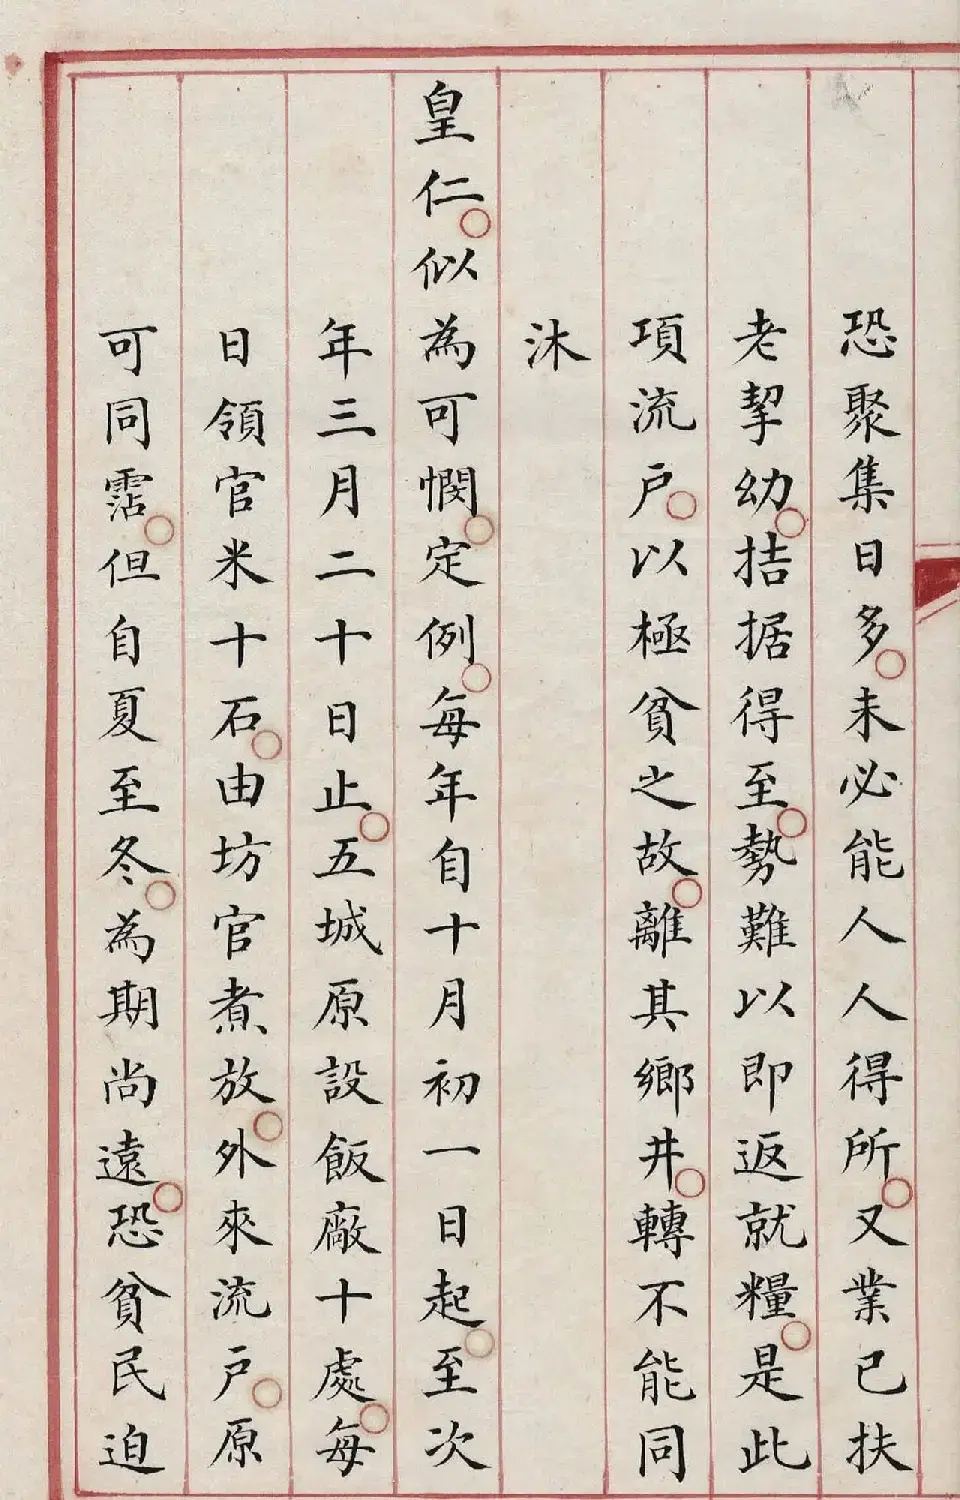 恐聚集日多未必能人人得所又業已扶
老挈幼拮据得至勢難以即返就糧是此
項流戶以極貧之故離其鄉井轉不能同
沐
皇仁似為可憫定例每年自十月初一日起至次
年三月二十日止五城原設飯廠十處每
日領官米十石由坊官煮放外來流戶原
可同霑但自夏至冬為期尚遠恐貧民迫